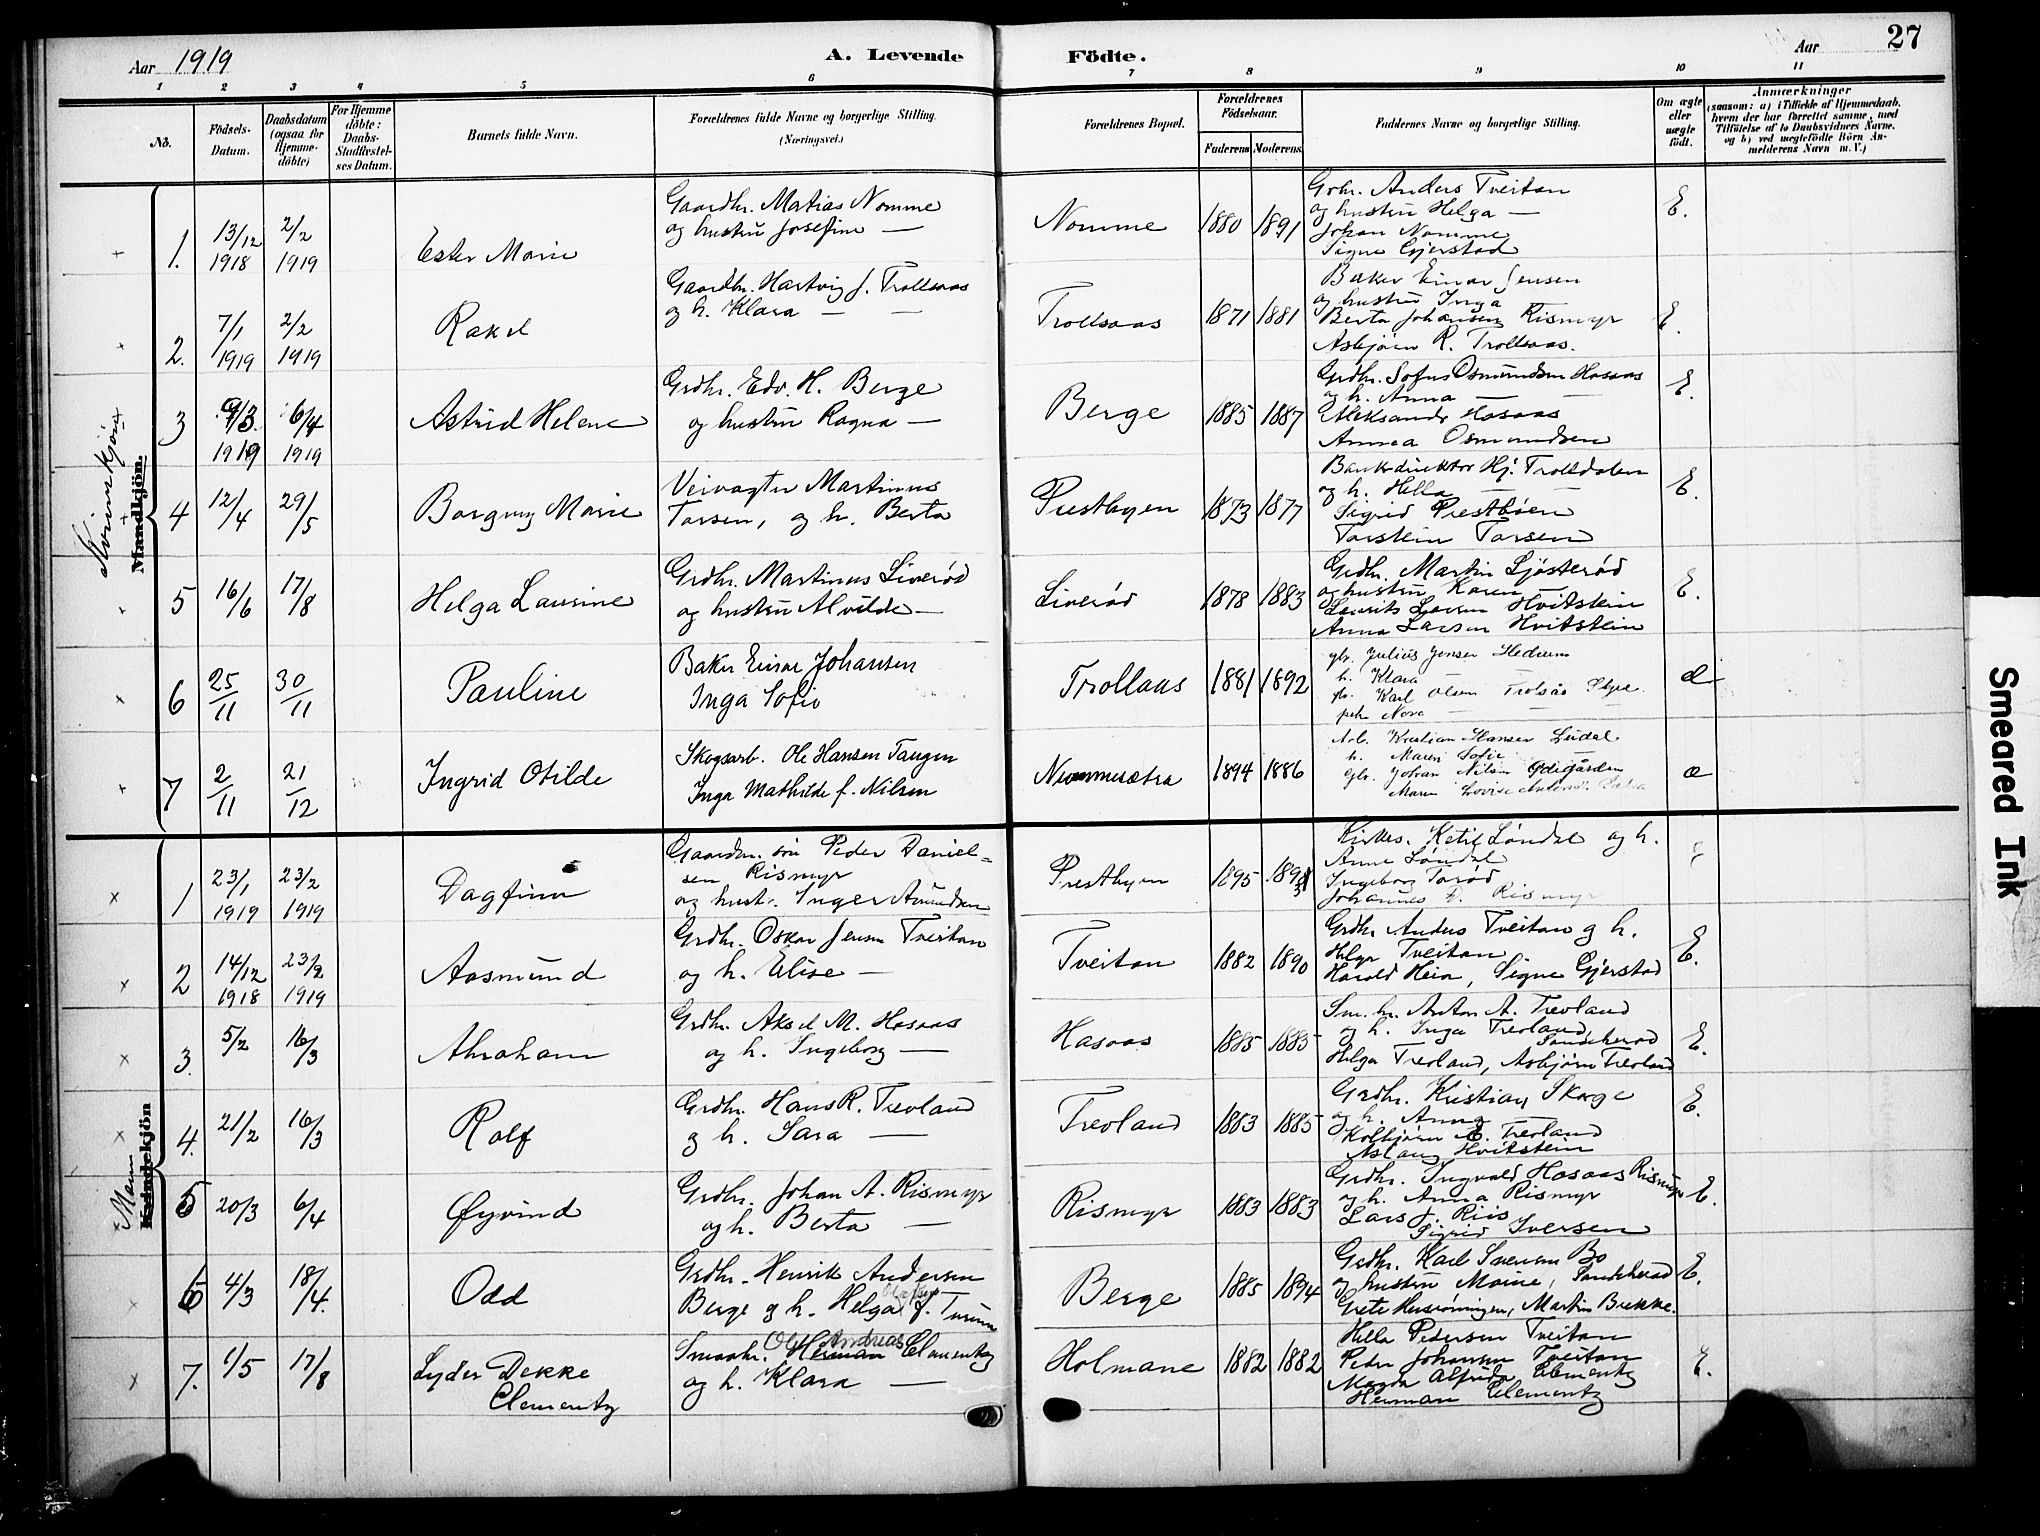 Aar 1919
A. Levende
Födte.
Aar
27
1 2 3 4 5 6 7 8 9 10 11
No.
Födsels-
Datum.
Daabsdatum
(ogsaa for
Hjemme-
döbte)
For Hjemme
döbte:
Daabs-
Stadfæstel-
ses Datum.
Barnets fulde Navn.
Forældrenes fulde Navne og borgerlige Stilling.
(Næringsvei.)
Forældrenes Bopæl.
Forældrenes
Födselsaar.
Faderens Moderens
Faddernes Navne og borgerlige Stilling.
Om ægte
eller
uægte
födt.
Anmærkninger
(saasom: a) i Tilfælde af Hjemmedaab,
hvem der har forrettet samme, med
Tilföielse af to Daabsvidners Navne,
og b) ved uægtefödte Börn An-
melderens Navn m. V.)
Kvinnekjøn
Mandkjön.
1. 13/12 1918 2/2 1919 Ester Marie
Gaardbr. Matias Nomme
og hustru Josefine —
Nomme 1880 1891
Grbr. Anders Tveitan
og hustru Helga —
Johan Nomme
Signe Gjerstad
E.
2. 7/1 1919 2/2 1919 Rakel
Gaardbr. Hartvig J. Trollsaas
og h. Klara — —
Trollsaas 1871 1881
Baker Einar Jensen
og hustru Inga
Berta Johansen Rismyr
Asbjørn R. Trollsaas.
E.
3 9/3. 1919 6/4 1919 Astrid Helene
Grdbr. Edv. H. Berge
og hustru Ragna —
Berge 1885 1887
Grdbr. Sofus Osmundsen Hasaas
og h. Anna — —
Aleksander Hasaas
Annea Osmundsen
E.
4 12/4 29/5 Borgny Marie
Veivagter Martinus
Tarsen, og h. Berta
Prestbyen 1873 1877
Bankdirektør Hj. Trolldalen
og h. Hella — —
Sigrid Prestbøen
Torstein Tarsen
E.
5 16/6 17/8 Helga Laurine
Grdbr. Martinus Liverød
og hustru Alvilde —
Liverød 1878 1883
Grdbr. Martin Ljøsterød
og hustru Karen
Laurits Larsen Hvitstein
Anna Larsen Hvitstein
E.
6 25/11 30/11 Pauline
Baker Einar Johansen
Inga Sofie
Trollaas 1881 1892
gbr. Julius Jensen Hedrum
h. Klara
gbr. Karl Olsen Trolsås
Nora —
æ
7 2/11 21/12 Ingrid Otilde
Skogsarb. Ole Hansen Tangen
Inga Mathilde f. Nilsen
Nummesætra 1894 1886
Arb. Kristian Hansen
h. Maren Sofie
gbr. Johan Nilsen Ødegården
Maren Lovise
æ
Mann
Kvindekjön
1 23/1 1919 23/2 1919 Dagfinn
Gaardbr. søn Peder Daniel=
sen Rismyr
og hustr. Inger Amundsen
Prestbyen 1895
Kirkes. Ketil Løndal og h.
Anne Løndal
Ingeborg Torød
Johannes D. Rismyr
2 14/12 1918 23/2 1919 Aasmund
Grdbr. Oskar Jensen Tveitan
og h. Elise —
Tveitan 1882 1890
Grdbr. Anders Tveitan og h.
Helga Tveitan
Harald Heia, Signe Gjerstad
E.
3. 5/2 16/3 Abraham
Grdbr. Aksel M. Hasaas
og h. Ingeborg —
Hasaas 1885 1885
Sm.br. Anton A. Trevland
og h. Inga Trevland,
Sandeherad
Helga Trevland, Asbjørn Trevland
E.
4. 21/2 16/3 Rolf
Grdbr. Hans R. Trevland
og h. Sara —
Trevland 1883 1885
Grdbr. Kristian Skorge
og h. Anna
Kolbjørn E. Trevland
Aslaug Hvitstein
E.
5 20/3 6/4 Øyvind
Grdbr. Johan A. Rismyr
og h. Berta —
Rismyr 1883 1883
Grdbr. Ingvald Hasaas Rismyr
og h. Anna Rismyr
Lars J. Riis
Sigrid Iversen
E.
6 4/3 18/4. Odd
Grdbr. Henrik Andersen
Berge og h. Helga
Berge 1885 1894
Grdbr. Karl Svensen Bo
og hustru Marie, Sandeherad
Grete Hersrøningen, Martin Brekke.
E.
7. 1/5 17/8 Lyder Dekke
Clementz
Ole Andreas
Smaabr. Herman Clementz
og h. Klara —
Holmane 1882 1882
Hella Pedersen Tveitan
Peder Johansen Tveitan
Magda Alfrida Clementz
Herman Clementz
E.
Smeared Ink